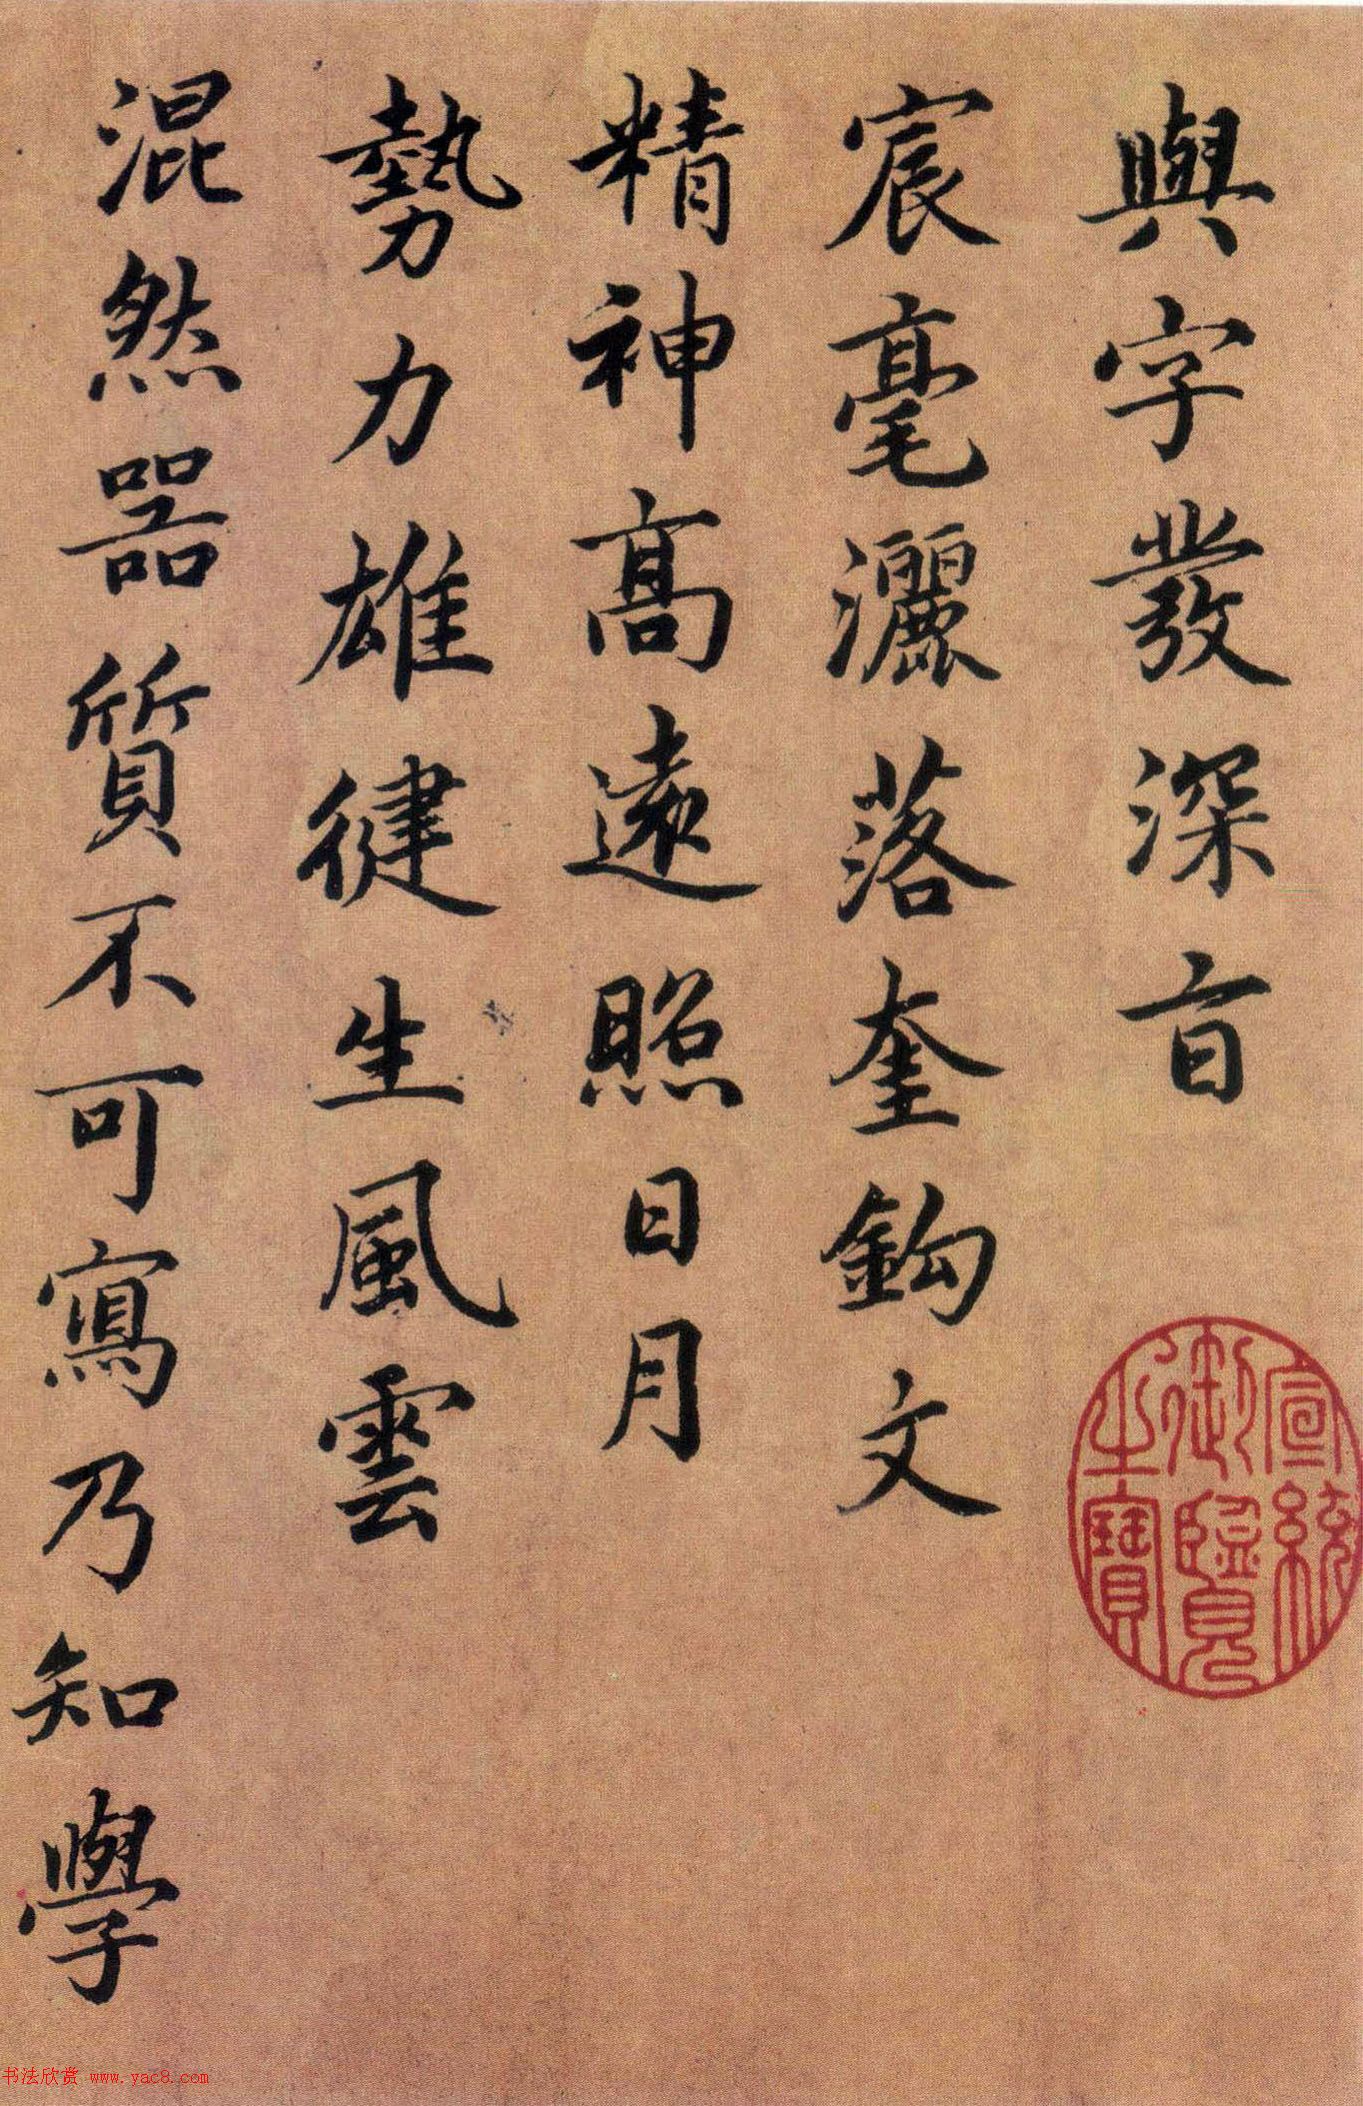 與字發深盲
宸毫灑落奎鈎文
精神高遠照日月
勢力雄健生風雲
混然器質不可寫乃知學
宣統
御覽
之寶
书法欣赏 www.yac8.com